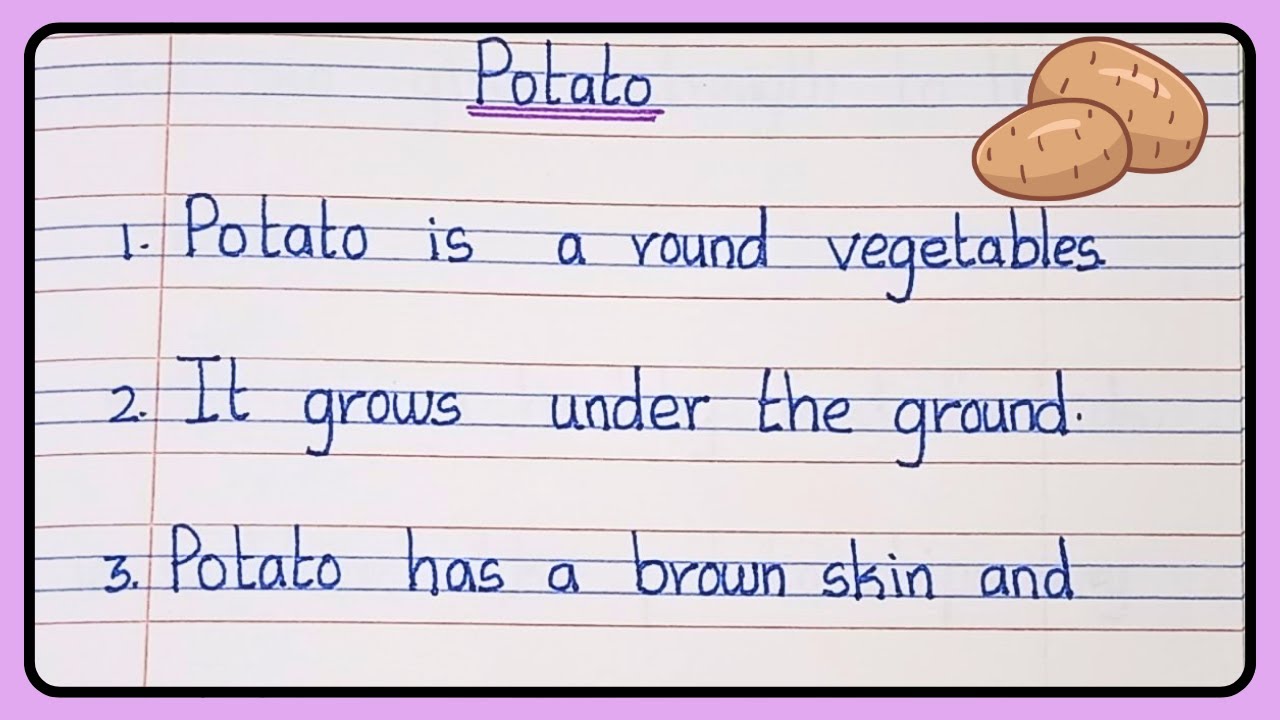 Potato
1. Potato is a round vegetables.
2. It grows under the ground.
3. Potato has a brown skin and